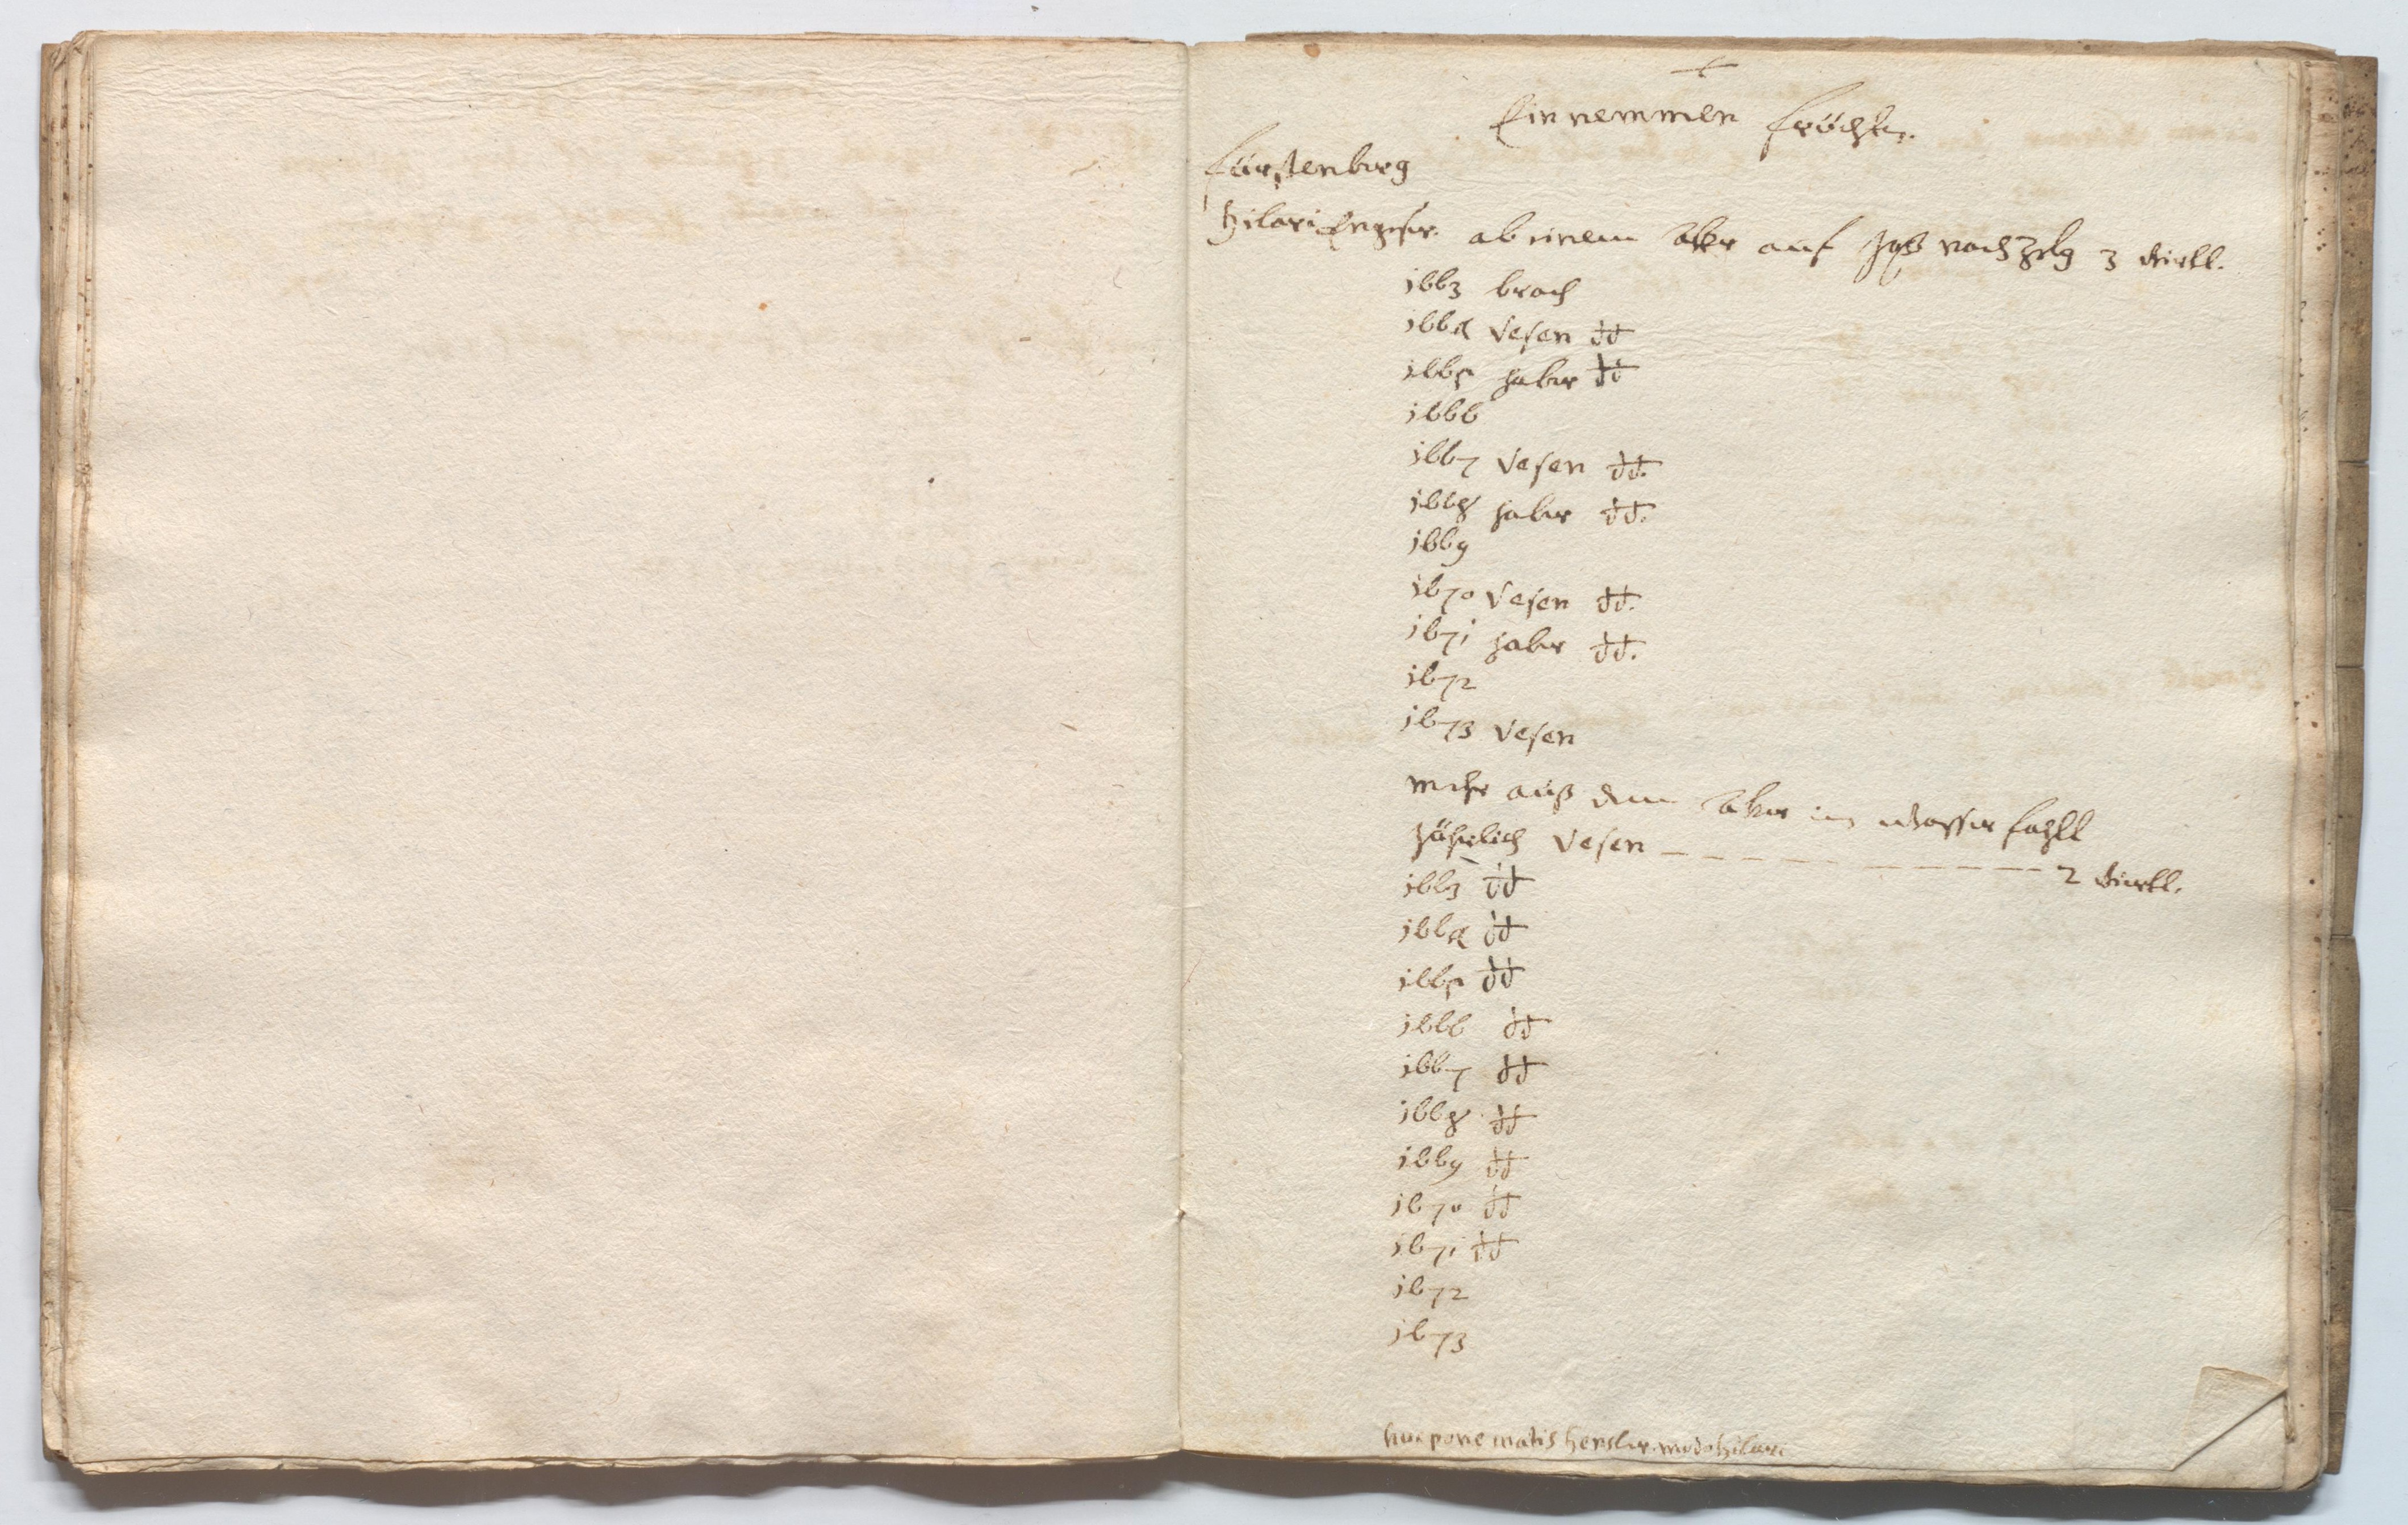 Einnemmen frücht.
Fürstenberg
Hilari ab einem aker auf nach Zelg 3 viertl.
1663 brach
1664 Vesen dt
1665 haber dt
1666
1667 Vesen dt.
1668 haber dt.
1669
1670 Vesen dt.
1671 haber dt.
1672
1673 Vesen
mehr auß dem aker im wasser fahll
Jährlich Vesen 2 viertl.
1663 dt
1664 dt
1665 dt
1666 dt
1667 dt
1668 dt
1669 dt
1670 dt
1671 dt
1672
1673
huc pone matis hensler modo hilari